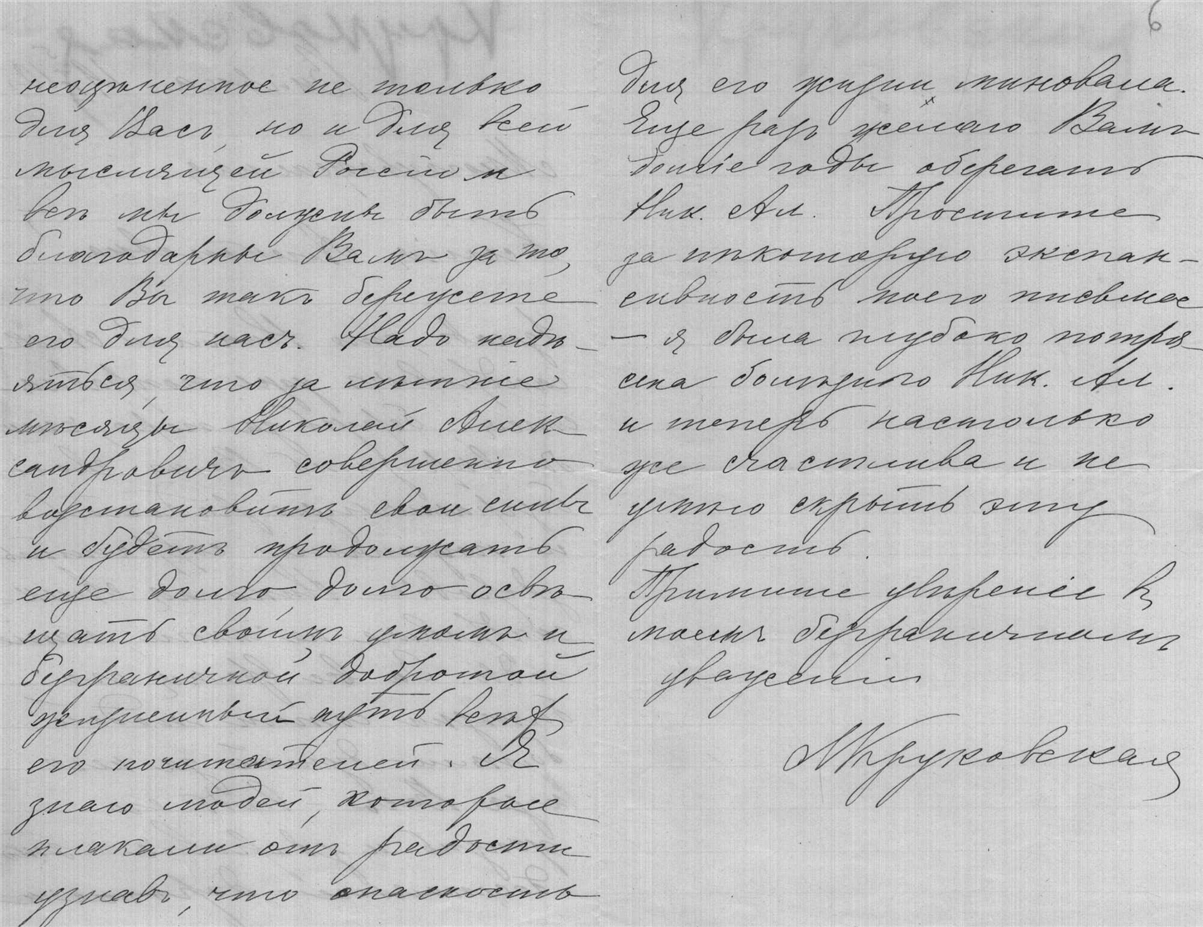 неоцѣненное не только
для Васъ, но и для всей
мыслящей Россіи и
всѣ мы должны быть
благодарны Вамъ за то,
что Вы такъ бережете
его для насъ. Надо надѣ-
яться, что за лѣтніе
мѣсяцы Николай Алек
сандровичъ совершенно
возстановитъ свои силы
и будетъ продолжать
еще долго долго освѣ-
щать своимъ умомъ и
безграничной добротой
жизненный путь всѣхъ
его почитателей. Я
знаю людей, которые
плакали отъ радости
узнавъ, что опасность
6
для его жизни миновала.
Еще разъ желаю Вамъ
долгіе годы оберегать
Ник. Ал. Простите
за нѣкоторую экспан-
сивность моего письма
– я была глубоко потря-
сена болѣзнью Ник. Ал.
и теперь настолько
же счастлива и не
умѣю скрыть эту
радость.
Примите увѣреніе въ
моемъ безграничномъ
уваженіи
МКруковская